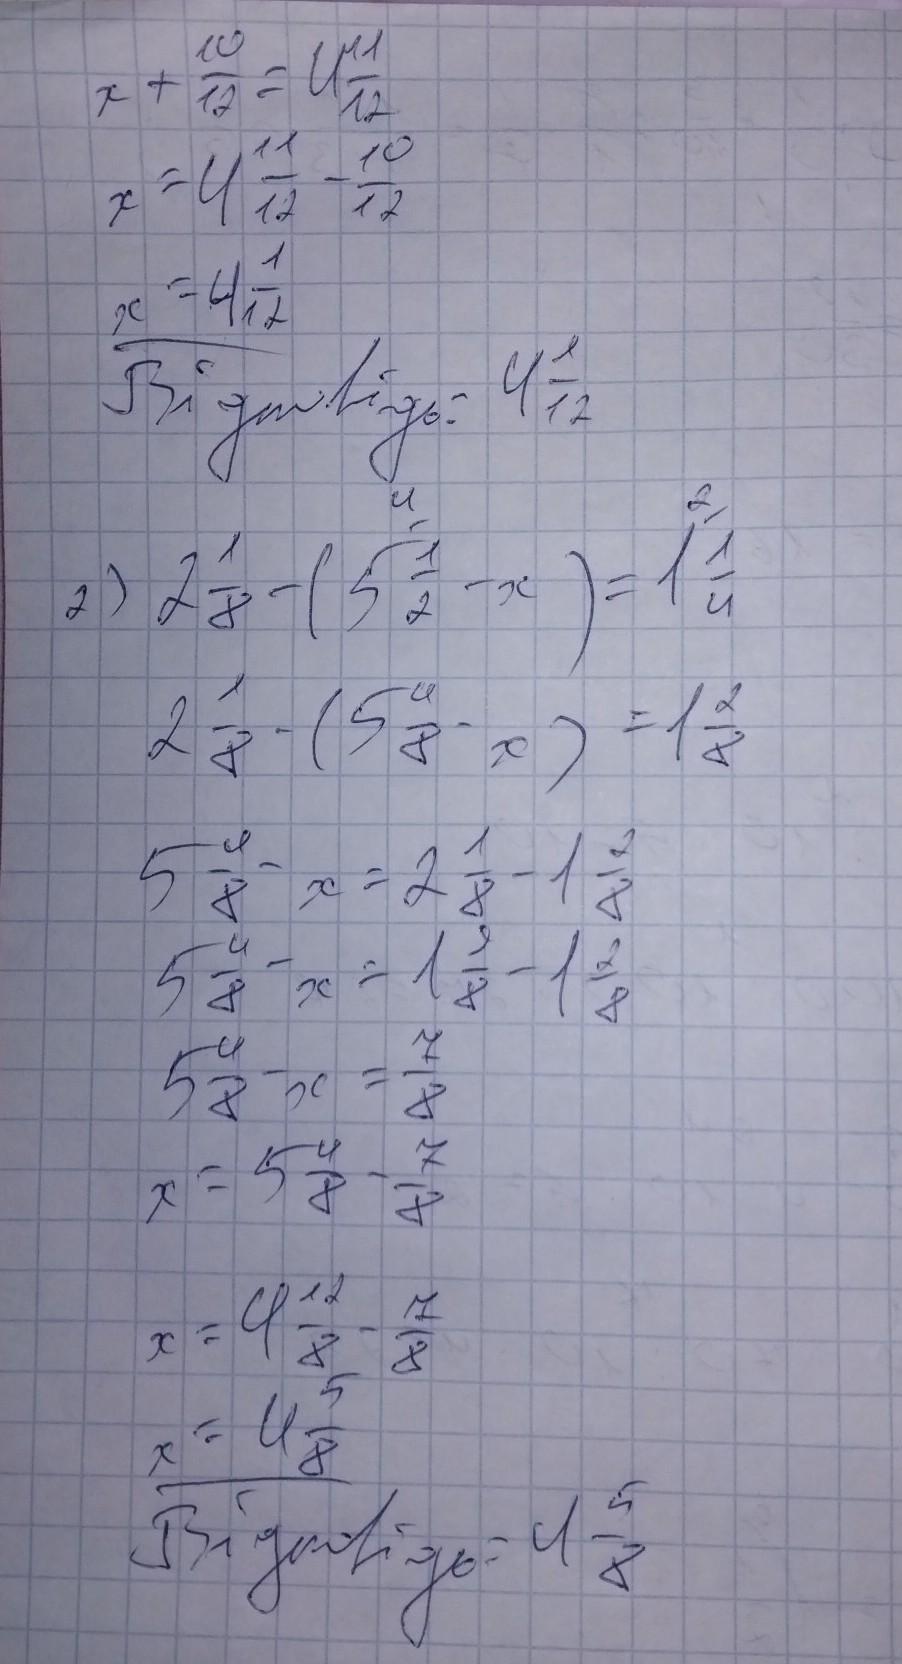 x + 10/12 = 4 11/12
x = 4 11/12 - 10/12
x = 4 1/12
Відповідь: 4 1/12
4 2
2) 2 1/8 - (5 1/2 - x) = 1 1/4
2 1/8 - (5 4/8 - x) = 1 2/8
5 4/8 - x = 2 1/8 - 1 2/8
5 4/8 - x = 1 /8 - 1 2/8
5 4/8 - x = 7/8
x = 5 4/8 - 7/8
x = 4 12/8 - 7/8
x = 4 5/8
Відповідь: 4 5/8